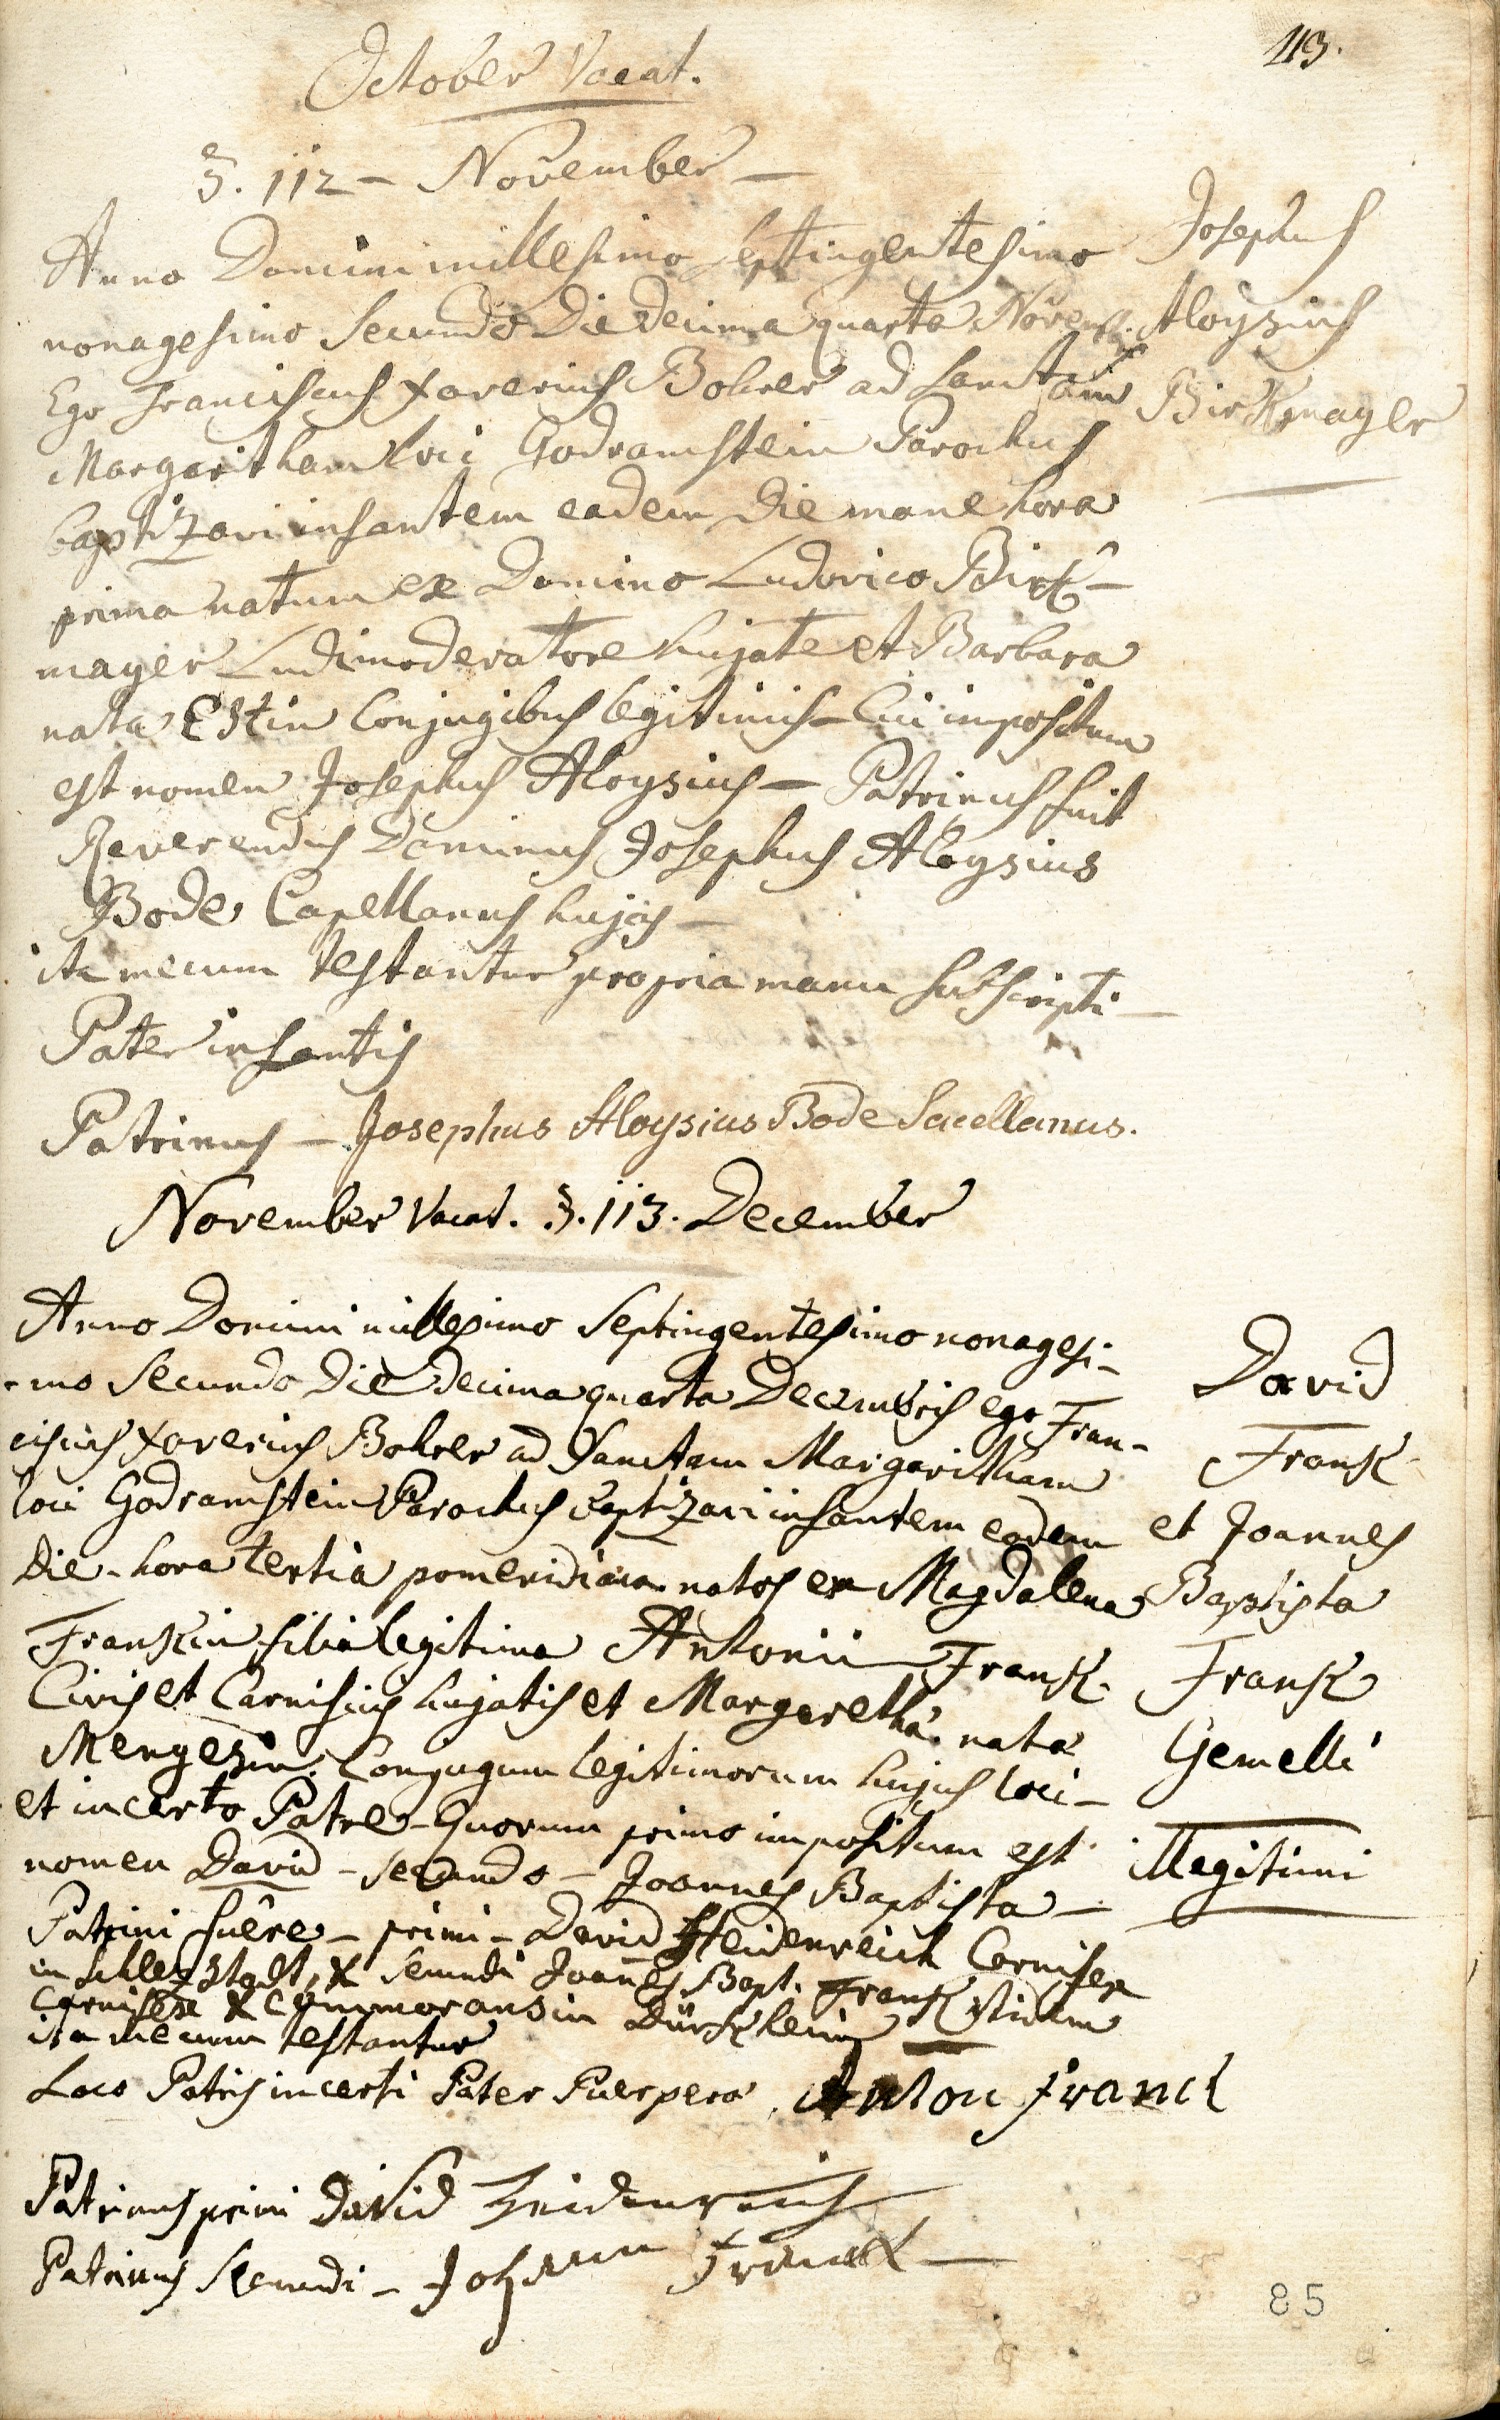 113.
October Vacat.
§. 112 – November –
Anno Domini millesimo septingentesimo
nonagesimo secundo Die decima quarta Novemb.
Ego Franciscus Xaverius Bohrer ad Sanctam
Margaritham loci Godramstein Parochus
baptizavi infantem eadem die mane hora
prima natum ex Domino Ludovico Birk-
mayer Ludimoderatore hujate et Barbara
nata Estin Conjugibus legitimis – Cui impositum
est nomen Josephus Aloysius – Patrinus fuit
Reverendus Dominus Josephus Aloysius
Bode Capellanus hujas –
ita mecum testantur propria manu subscripti –
Pater infantis
Patrinus – Josephus Aloysius Bode Sacellanus.
Josephus
Aloysius
Birkmayer
November Vacat. §. 113. December
Anno Domini millesimo Septingentesimo nonagesi-
-mo Secundo Die decima quarta Decembris ego Fran-
ciscus Xaverius Bohrer ad Sanctam Margaritham
loci Godramstein Parochus baptizavi infantem eadem
die – hora tertia pomeridiana natos ex Magdalena
Frankin filia legitima Antonii Frank
Civis et Carnificis hujatis et Margaretha nata
Mengesin Conjugum legitimorum hujus loci –
et incerto Patre – Quorum primo impositum est
nomen David – secundo – Joannes Baptista –
Patrini fuêre – primi – David Heidenreich Carnifex
in Schlezstadt, & secundi Joanes Bapt. Frank
Carnifex & commorans in Dürkheim
ita mecum testantur
Loco Patris incerti Pater Puerpera Anton Franck
Patrinus primi David Heidenreich
Patrinus Secundi – Johann Franck –
David
Frank
et Joannes
Baptista
Frank
Gemelli
Illegitimi
85